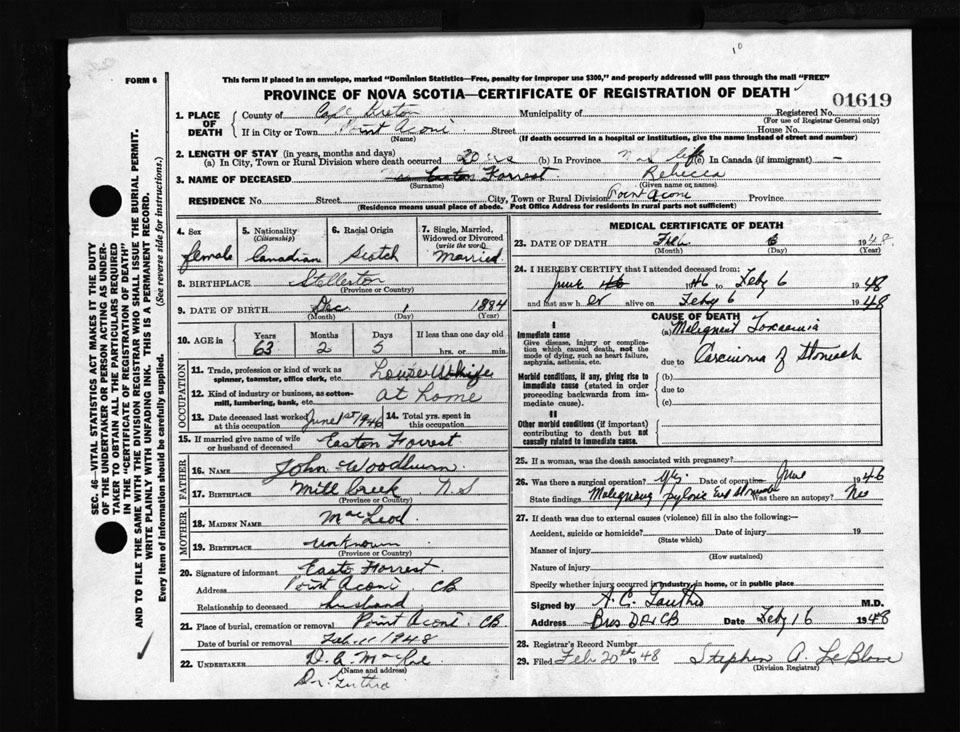 FORM 6
This form if placed in an envelope, marked "Dominion Statistics—Free, penalty for improper use $300," and properly addressed will pass through the mail "FREE"
PROVINCE OF NOVA SCOTIA—CERTIFICATE OF REGISTRATION OF DEATH
01619
1. PLACE OF DEATH
County of Cape Breton Municipality of Registered No.
(For use of Registrar General only)
If in City or Town Point Aconi Street House No.
(Name) (If death occurred in a hospital or institution, give the name instead of street and number)
2. LENGTH OF STAY (in years, months and days)
(a) In City, Town or Rural Division where death occurred 20 yrs (b) In Province life (c) In Canada (if immigrant) —
3. NAME OF DECEASED Forrest Rebecca
(Surname) (Given name or names)
RESIDENCE No. Street City, Town or Rural Division Point Aconi Province
(Residence means usual place of abode. Post Office Address for residents in rural parts not sufficient)
4. Sex female
5. Nationality (Citizenship) Canadian
6. Racial Origin Scotch
7. Single, Married, Widowed or Divorced (write the word) Married
8. BIRTHPLACE Stellerton
(Province or Country)
9. DATE OF BIRTH Dec 1 1884
(Month) (Day) (Year)
10. AGE Years Months Days If less than one day old
63 2 5 hrs. or min.
OCCUPATION
11. Trade, profession or kind of work as spinner, teamster, office clerk, etc.
12. Kind of industry or business, as cotton-mill, lumbering, bank, etc. at home
13. Date deceased last worked at this occupation June 1st 1946 14. Total yrs. spent in this occupation
15. If married give name of wife or husband of deceased Easton Forrest
FATHER
16. NAME John Woodburn
17. BIRTHPLACE Mill Creek N.S
(Province or Country)
MOTHER
18. MAIDEN NAME MacLeod
19. BIRTHPLACE unknown
(Province or Country)
20. Signature of informant Easto Forrest
Address Point Aconi CB
Relationship to deceased husband
21. Place of burial, cremation or removal Point Aconi CB.
Date of burial or removal Feb. 11 1948
22. UNDERTAKER
(Name and address)
MEDICAL CERTIFICATE OF DEATH
23. DATE OF DEATH Feb 6 1948
(Month) (Day) (Year)
24. I HEREBY CERTIFY that I attended deceased from:
June 1946 to Feby 6 1948
and last saw her alive on Feby 6 1948
CAUSE OF DEATH
I
Immediate cause (a) Malignant Toxaemia
Give disease, injury or complication which caused death, not the mode of dying, such as heart failure, asphyxia, asthenia, etc.
due to Carcinoma of Stomach
Morbid conditions, if any, giving rise to immediate cause (stated in order proceeding backwards from immediate cause).
(b)
due to
(c)
II
Other morbid conditions (if important) contributing to death but not causally related to immediate cause.
25. If a woman, was the death associated with pregnancy?
26. Was there a surgical operation? Yes Date of operation June 1946
State findings pyloric End Stomach Was there an autopsy? No
27. If death was due to external causes (violence) fill in also the following:—
Accident, suicide or homicide? Date of injury 19
(State which)
Manner of injury
(How sustained)
Nature of injury
Specify whether injury occurred in industry, in home, or in public place
Signed by M.D.
Address Date Feby 16 1948
28. Registrar's Record Number
29. Filed Feb 20th 1948 Stephen A. LeBlanc
(Division Registrar)
SEC. 46—VITAL STATISTICS ACT MAKES IT THE DUTY OF THE UNDERTAKER OR PERSON ACTING AS UNDERTAKER TO OBTAIN ALL THE PARTICULARS REQUIRED IN THE "CERTIFICATE OF REGISTRATION OF DEATH" AND TO FILE THE SAME WITH THE DIVISION REGISTRAR WHO SHALL ISSUE THE BURIAL PERMIT.
WRITE PLAINLY WITH UNFADING INK. THIS IS A PERMANENT RECORD.
Every item of information should be carefully supplied. (See reverse side for instructions.)